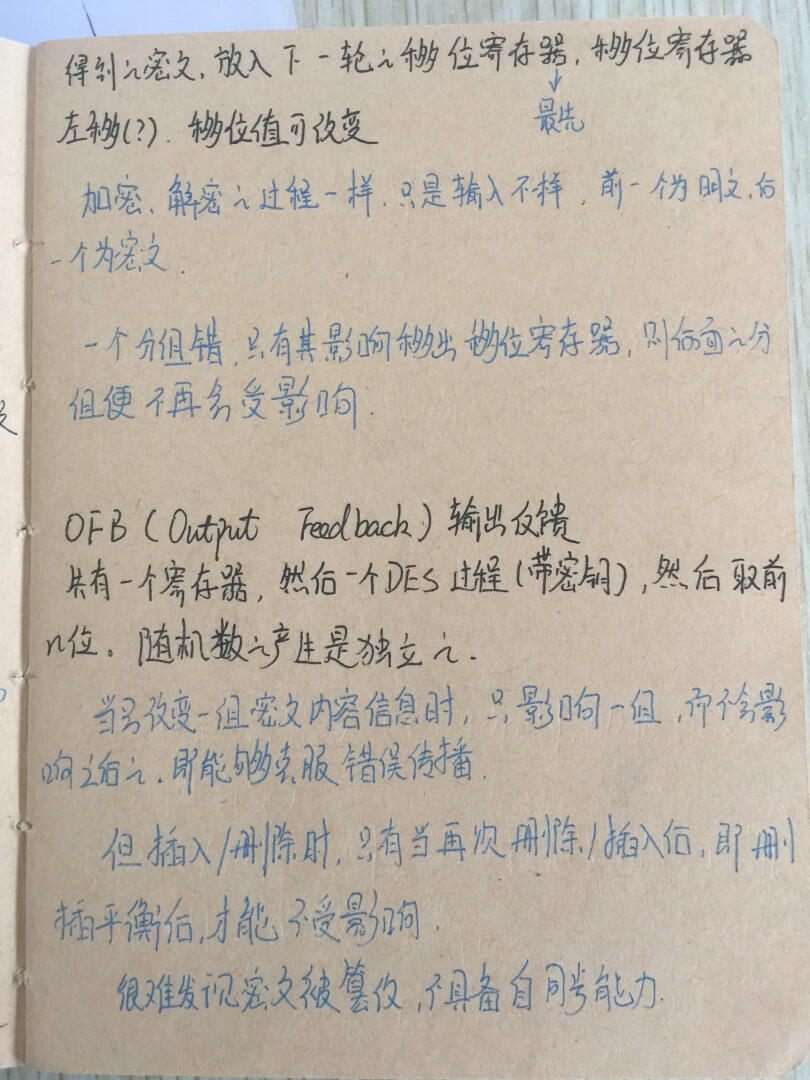 得到之密文,放入下一轮之移位寄存器,移位寄存器
最先
左移(?).移位值可改变
加密、解密之过程一样.只是输入不样,前一个为明文、后
一个为密文.
一个分组错,只有其影响移出移位寄存器,则后面之分
组便不再会受影响.
OFB(Output Feedback)输出反馈
共有一个寄存器,然后一个DES过程(带密钥),然后取前
n位。随机数之产生是独立之.
当只改变一组密文内容信息时,只影响一组,而不会影
响之后之.即能够克服错误传播.
但插入/删除时,只有当再次删除/插入后,即删
插平衡后,才能不受影响.
很难发现密文被篡改,不具备自同步能力.